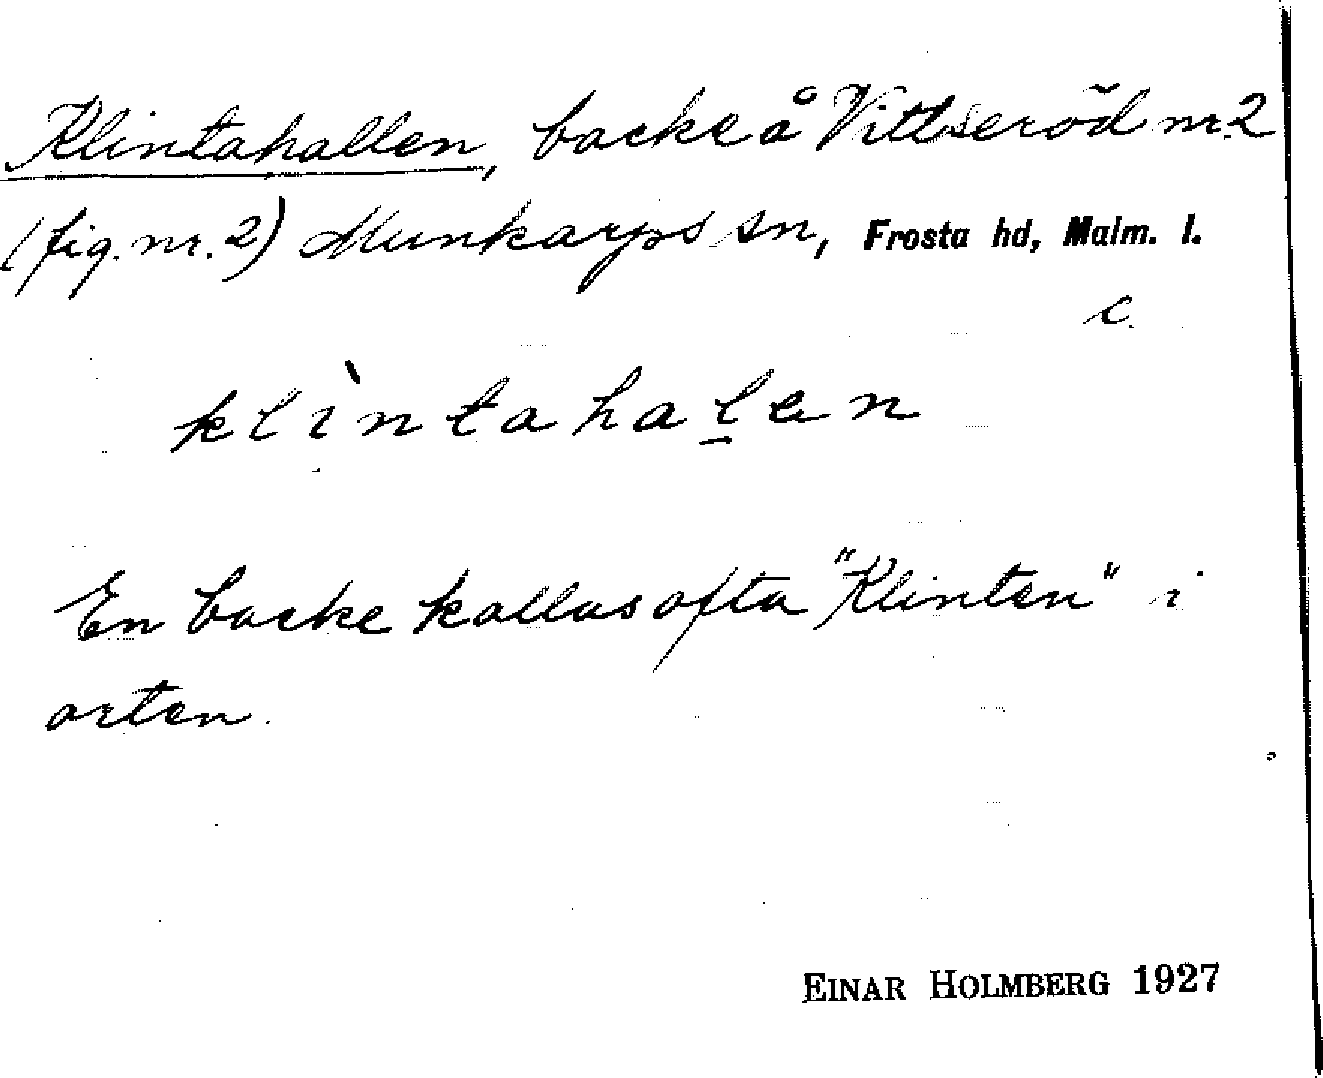 Klintahallen, backe å Vittseröd nr 2
(fig. nr. 2) Munkarps sn, Frosta hd, Malm. l.
c.
klìntahalen
En backe kallas ofta "Klinten" i
orten.
EINAR HOLMBERG 1927